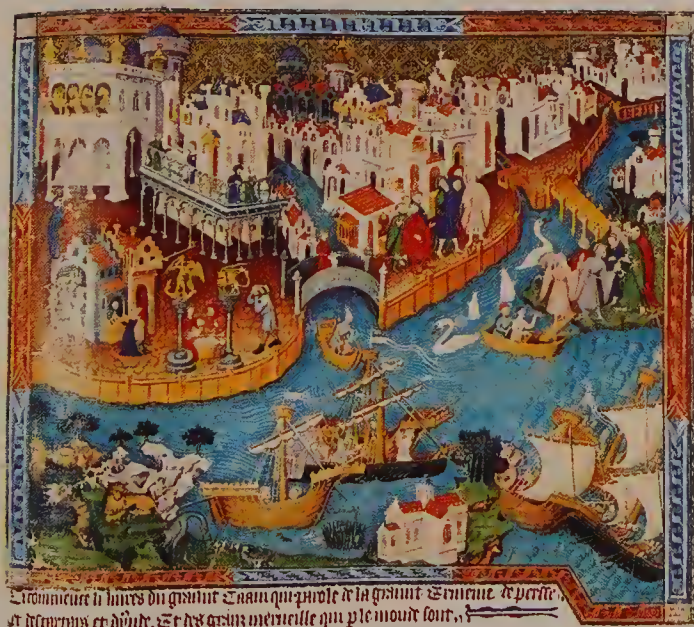 Ci commence li livres du graunt Caam qui parole de la graunt Ermenie de persse
et des tartars et dynde. Et des granz merveille qui p le monde sont